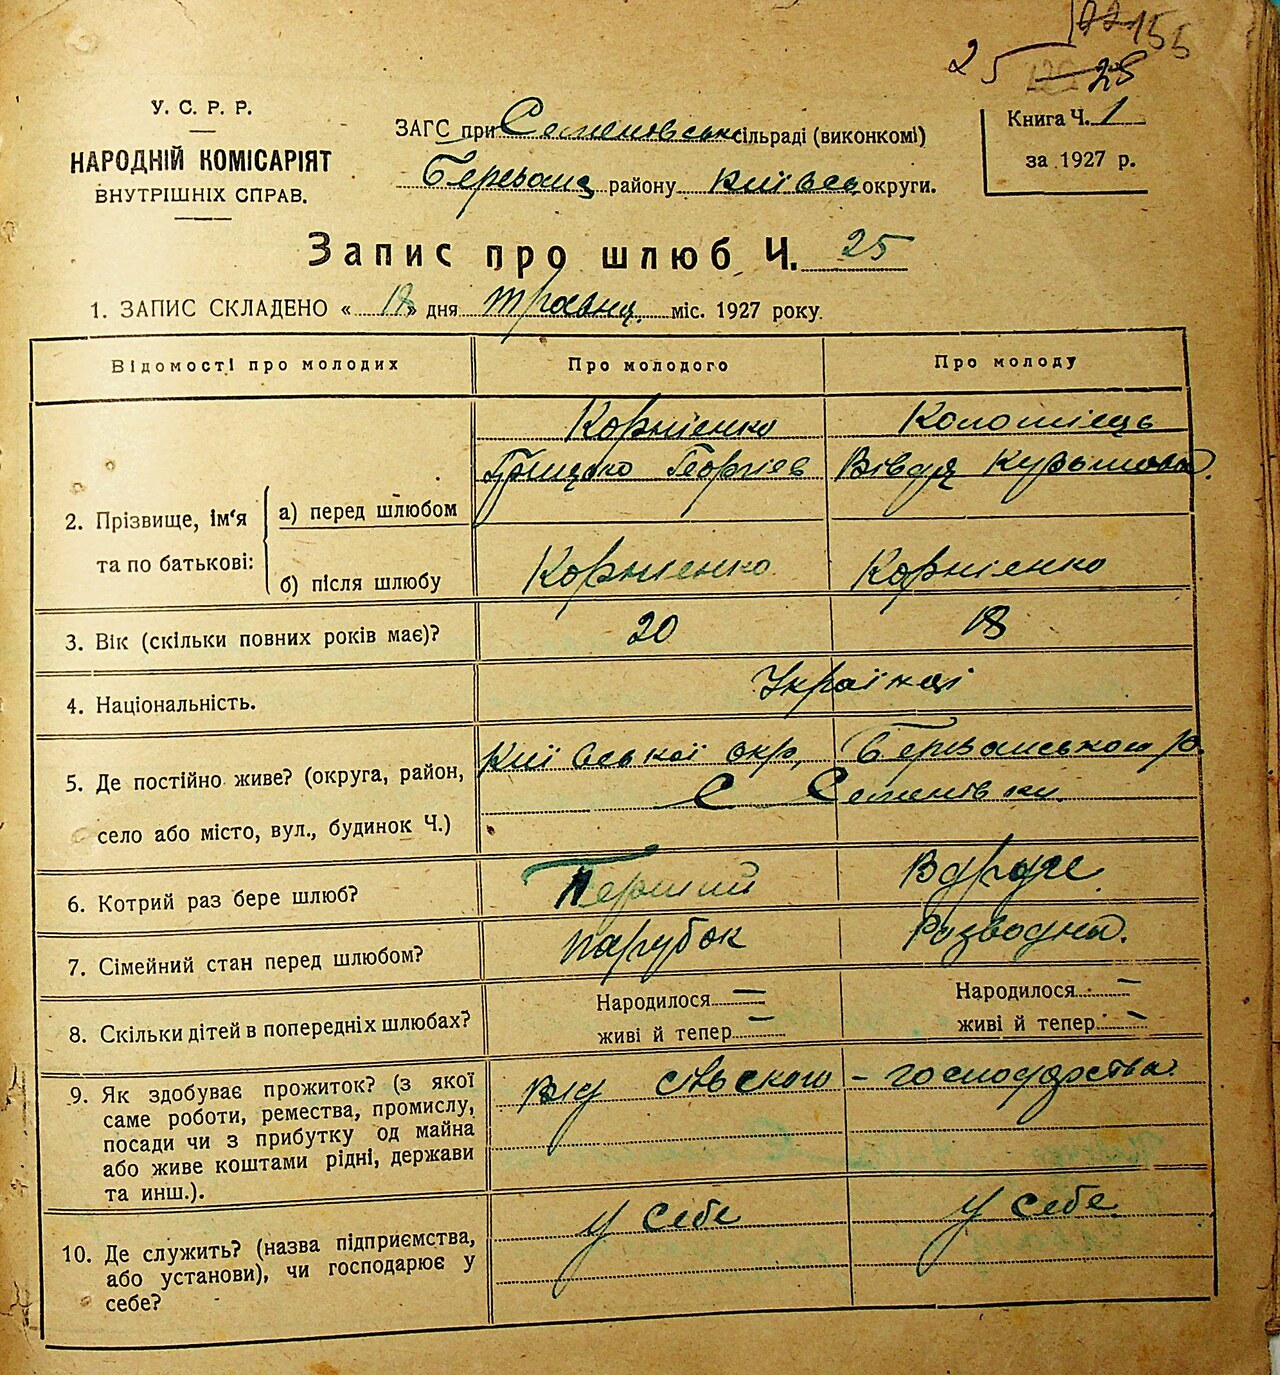 155
25 28
У. С. Р. Р.
НАРОДНІЙ КОМІСАРІЯТ
ВНУТРІШНІХ СПРАВ.
ЗАГС при Семеновськ сільраді (виконкомі)
Березанц району Київськ округи.
Книга Ч. 1
за 1927 р.
Запис про шлюб Ч. 25
1. ЗАПИС СКЛАДЕНО « 18 » дня травня міс. 1927 року.
Відомості про молодих Про молодого Про молоду
Корнієнко Коломієць
Грицько Георгіев Вівдя
2. Прізвище, ім'я та по батькові:
а) перед шлюбом
б) після шлюбу Корнієнко Корнієнко
3. Вік (скільки повних років має)? 20 18
4. Національність. Українці
5. Де постійно живе? (округа, район,
село або місто, вул., будинок Ч.)
Київської окр, Березанського р.
С Семенівки
6. Котрий раз бере шлюб? Перший Вдруге
7. Сімейний стан перед шлюбом? парубок Розводна.
8. Скільки дітей в попередніх шлюбах? Народилося – Народилося –
живі й тепер – живі й тепер –
9. Як здобуває прожиток? (з якої
саме роботи, ремества, промислу,
посади чи з прибутку од майна
або живе коштами рідні, держави
та инш.).
Від сільского - господарства
10. Де служить? (назва підприємства,
або установи), чи господарює у
себе?
у себе у себе